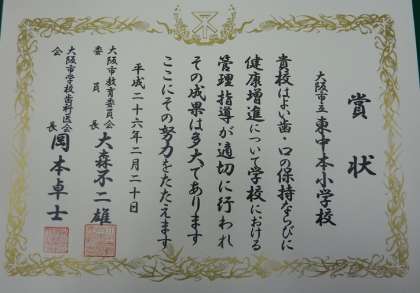 賞状
大阪市立東中本小学校
貴校はよい歯・口の保持ならびに
健康増進について学校における
管理指導が適切に行われ
その成果は多大であります
ここにその努力をたたえます
平成二十六年二月二十日
大阪市教育委員会
委員長 大森不二雄
大阪市学校歯科医会
会長 岡本卓士